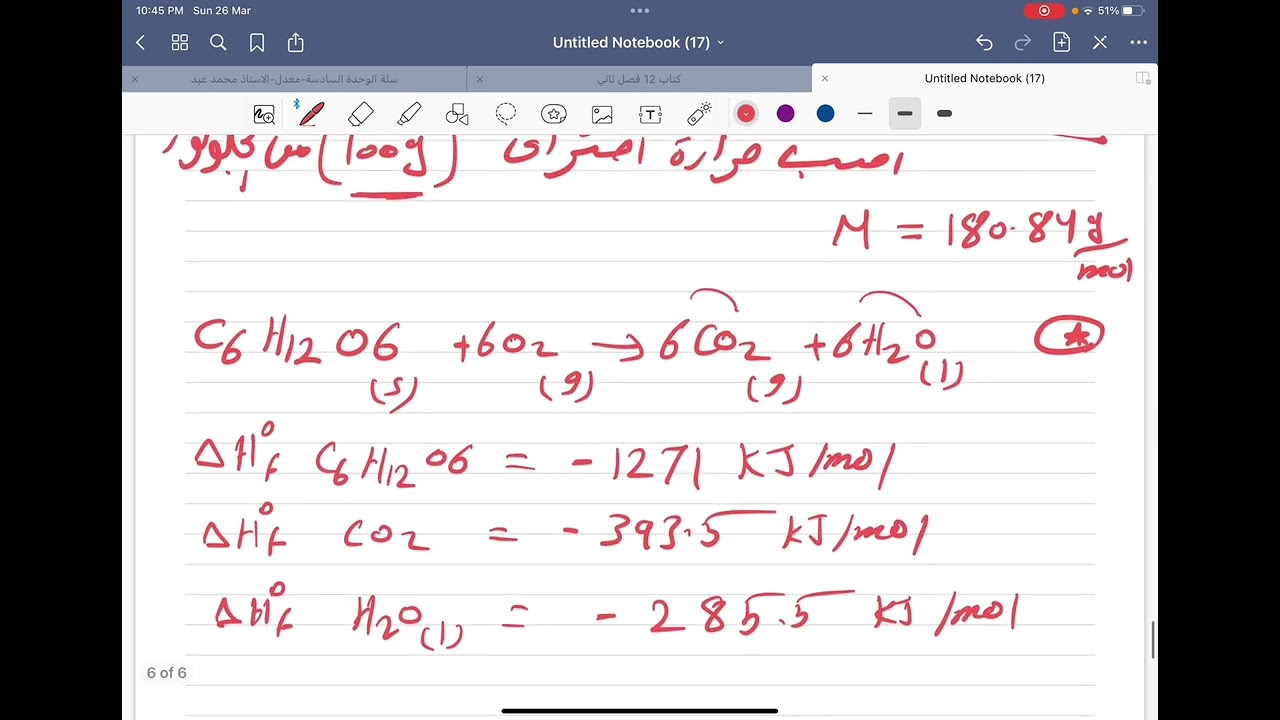 10:45 PM Sun 26 Mar
51%
Untitled Notebook (17)
سلة الوحدة السادسة-معدل-الاستاذ محمد عبد
كتاب 12 فصل ثاني
Untitled Notebook (17)
احسب حرارة احتراق (100g) من
M = 180.84 g/mol
C6H12O6 (s) + 6O2 (g) → 6CO2 (g) + 6H2O (l)
ΔH°f C6H12O6 = -1271 KJ/mol
ΔH°f CO2 = -393.5 KJ/mol
ΔH°f H2O(l) = -285.5 KJ/mol
6 of 6